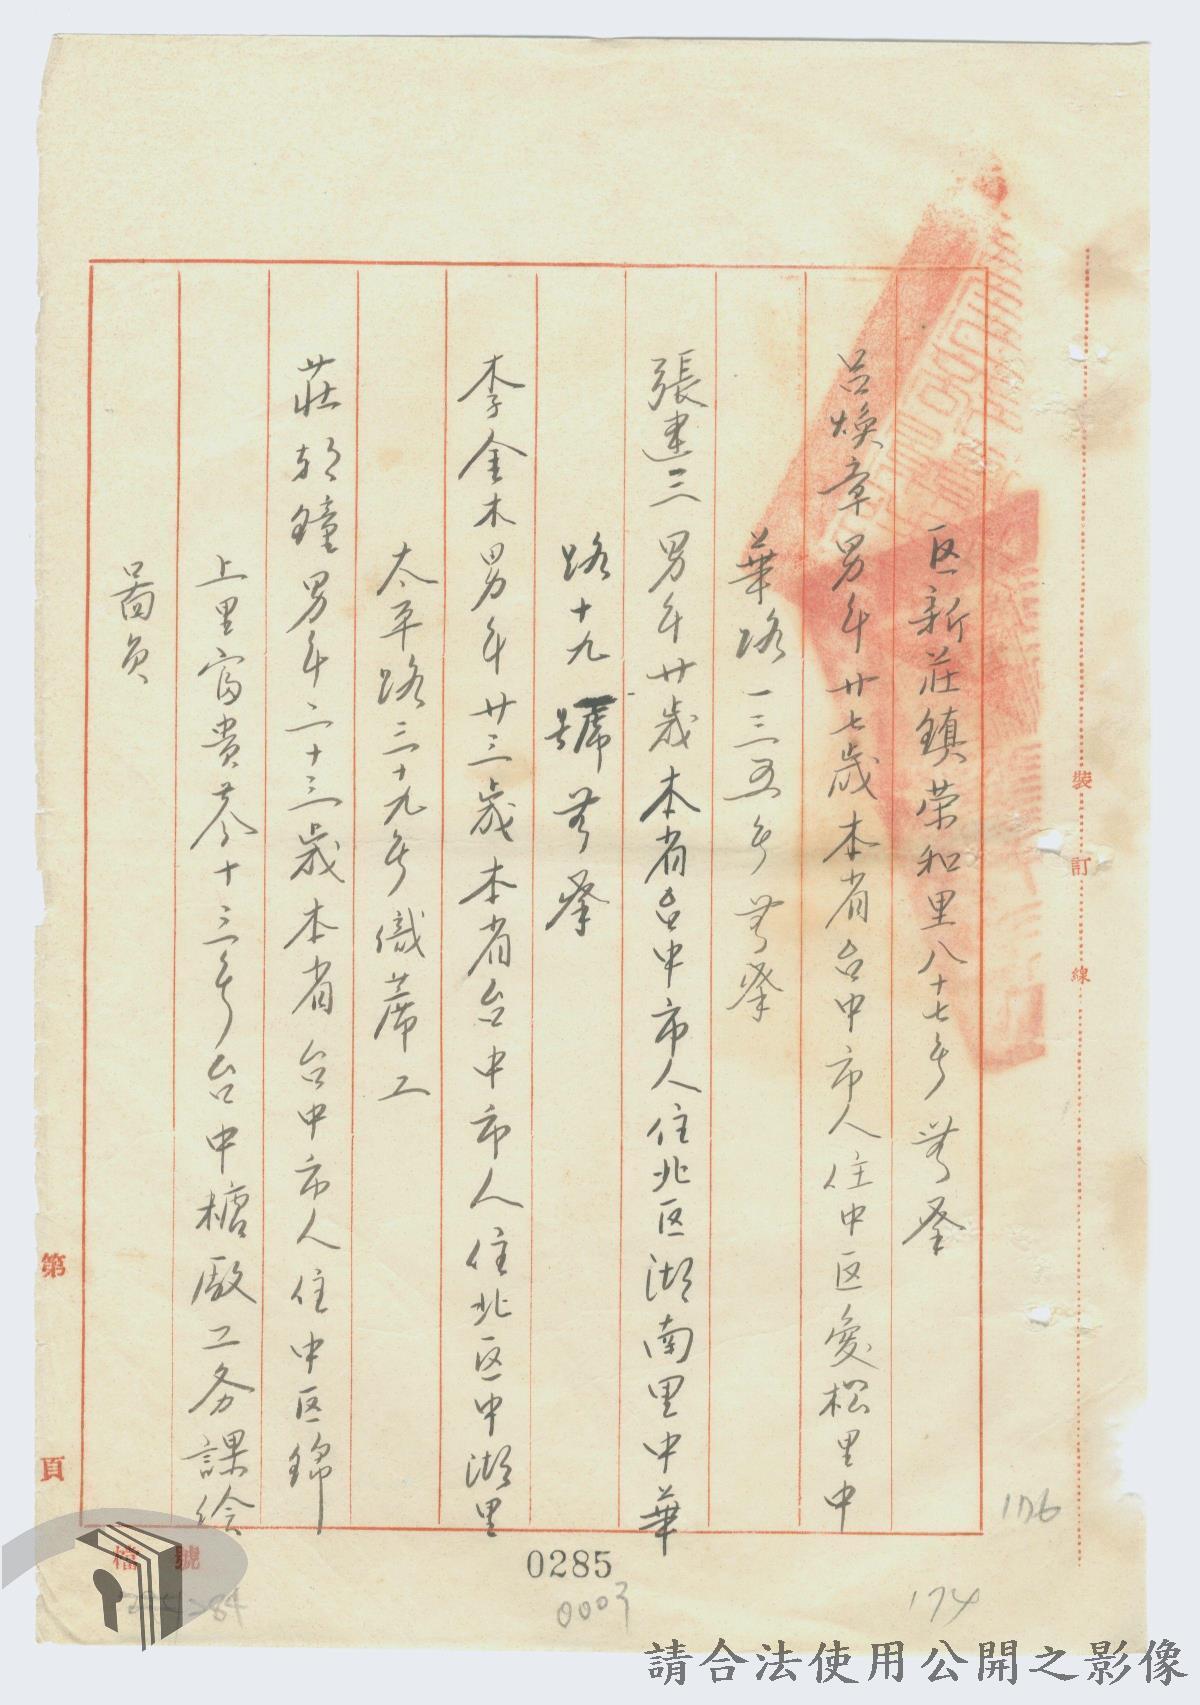 区新莊鎮荣和里八十七号無業
呂煥章男年廿七歲本省台中市人住中区爱松里中
華路一三五号無業
張建三男年廿歲本省台中市人住北区湖南里中華
路十九號無業
李金木男年廿三歲本省台中市人住北区中湖里
太平路三十九号織蓆工
莊朝鐘男年二十三歲本省台中市人住中区錦
上里富貴巷十三号台中糖廠工务課绘
圖員
裝
訂
線
第
頁
檔號
0285
0003
174
176
請合法使用公開之影像